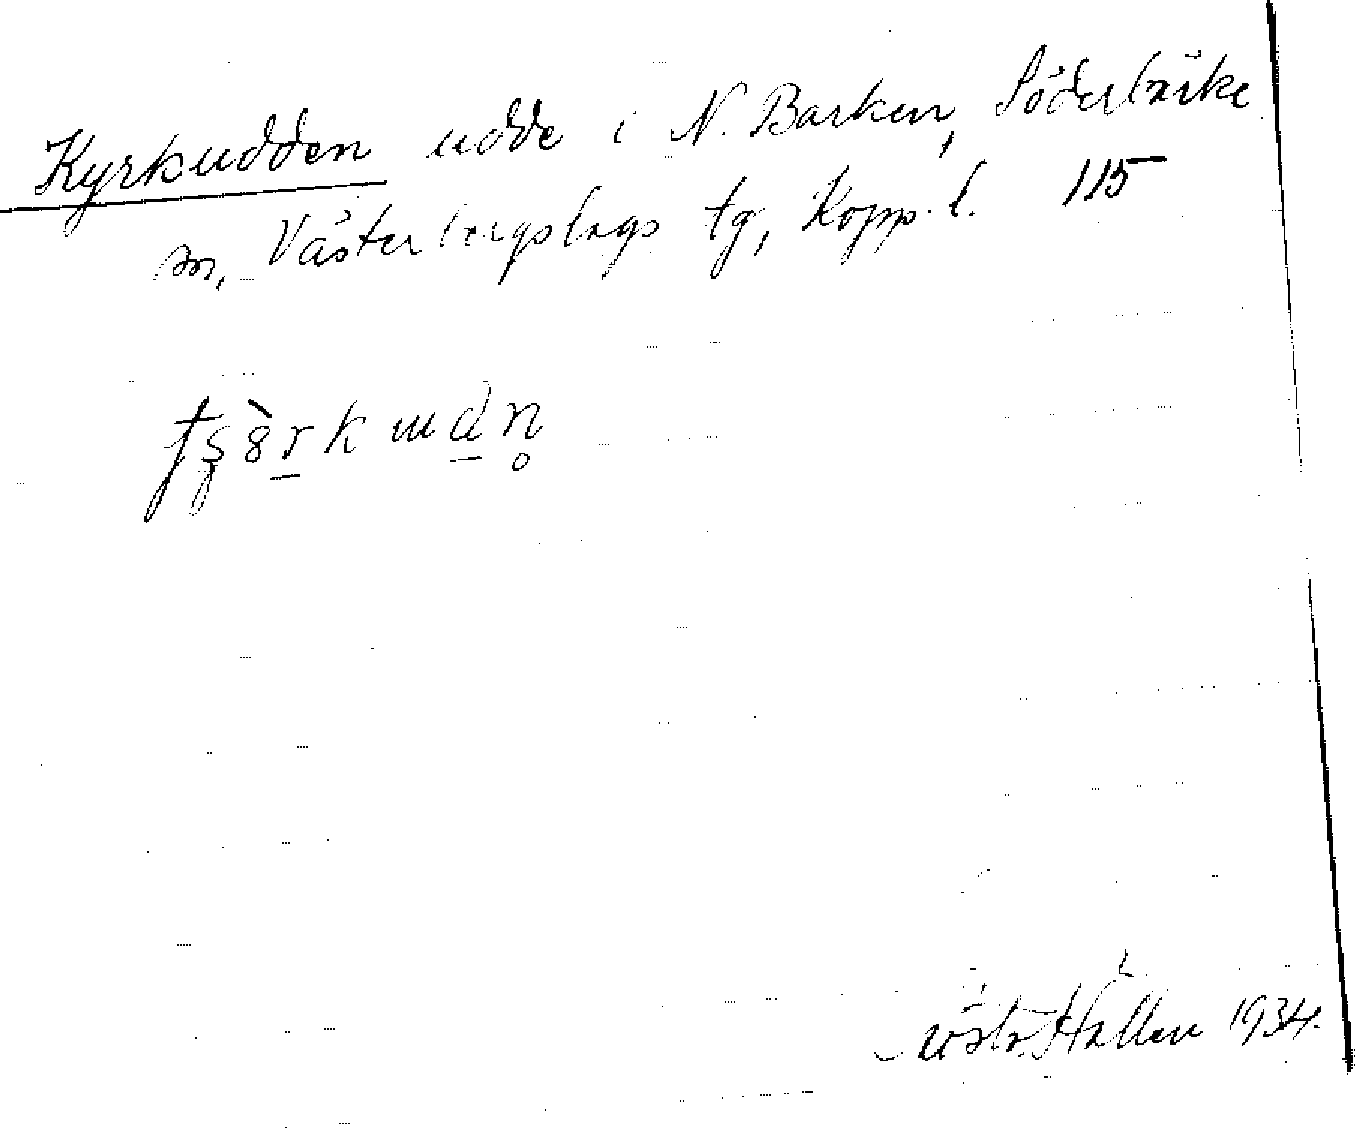 Kyrkudden udde i N. Barken, Söderbärke
m, Västerbergslags tg, Kopp. l. 115
Hällen 1934.